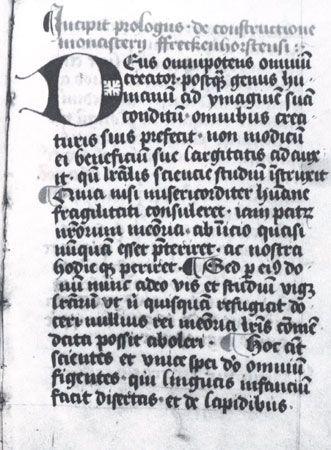 Incipit prologus · de constructione
monastery ffreckenhorstensi :
Deus omnipotens omniū
creator · postqȝ genus hu
manū ad ymaginē suā
conditū · omnibus crea
turis suis prefecit · non modicū
ei beneficiū sue largitatis adaux
it · lr̄alis sciencie studiū instruxit
nisi misericorditer humane
fragilitati consuleret · iam
nr̄orum meōria · ab inicio quasi
nūquam esset · ac nostra
hodie qȝ periret · ¶ Sed p eiꝰ do
nū nunc adeo vis et studiū vigȝ
lr̄arū vt quisquā refugiat do
ceri nullius rei meōria lr̄is cōmē
data possit aboleri · ¶ Hoc
scientes et vnice spei dō omniū
figentes · qui linguas infanciū
facit disertas · et de lapidibus ·